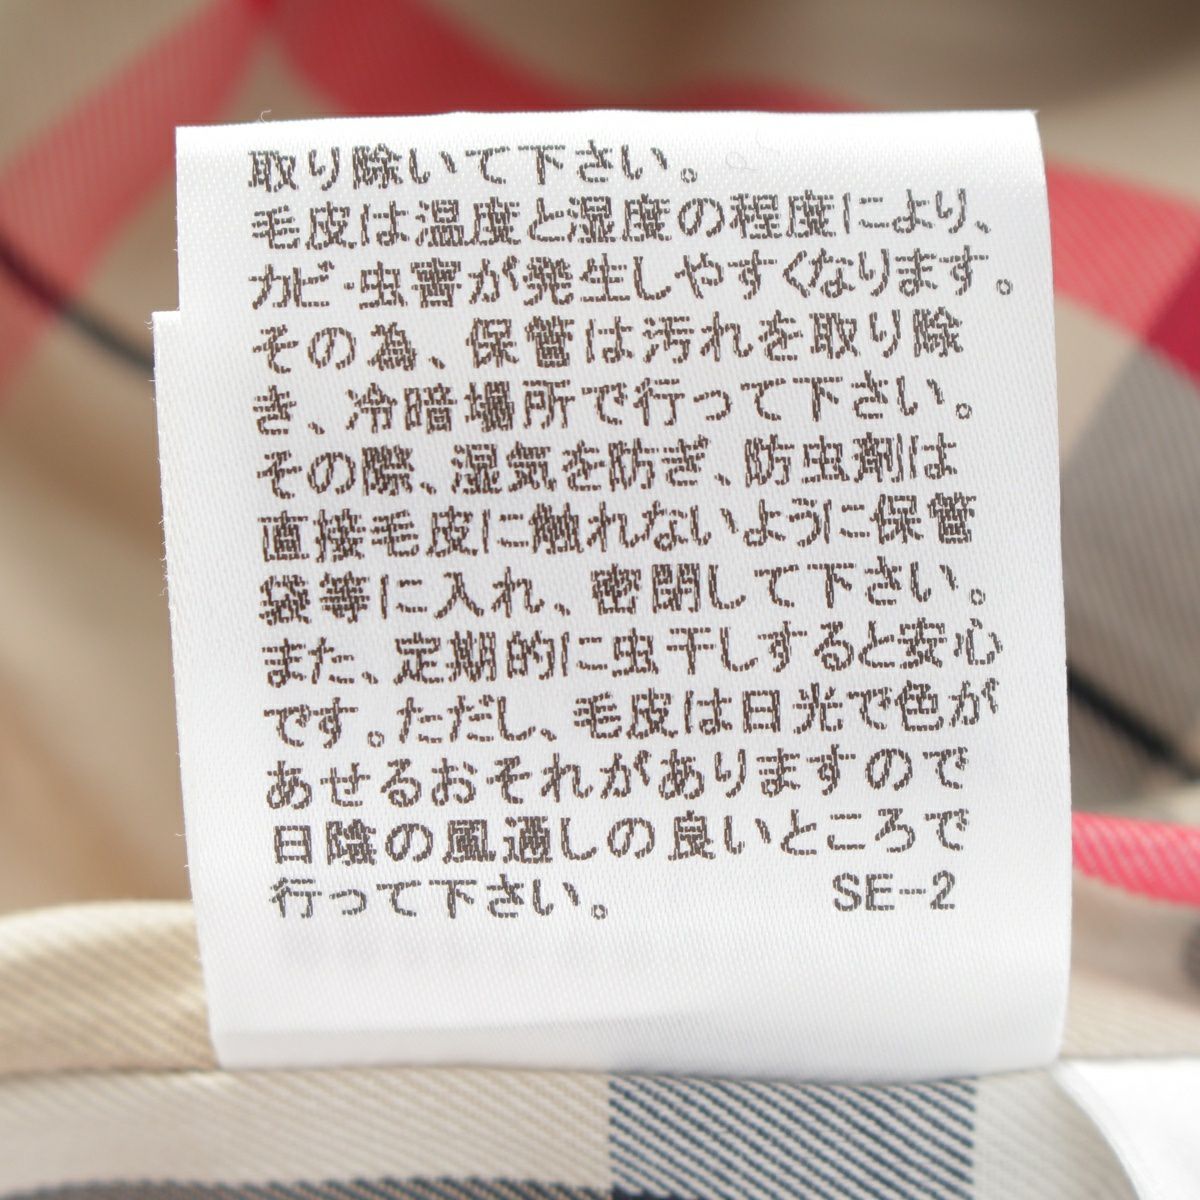 取り除いて下さい。
毛皮は温度と湿度の程度により、
カビ・虫害が発生しやすくなります。
その為、保管は汚れを取り除
き、冷暗場所で行って下さい。
その際、湿気を防ぎ、防虫剤は
直接毛皮に触れないように保管
袋等に入れ、密閉して下さい。
また、定期的に虫干しすると安心
です。ただし、毛皮は日光で色が
あせるおそれがありますので
日陰の風通しの良いところで
行って下さい。 SE-2